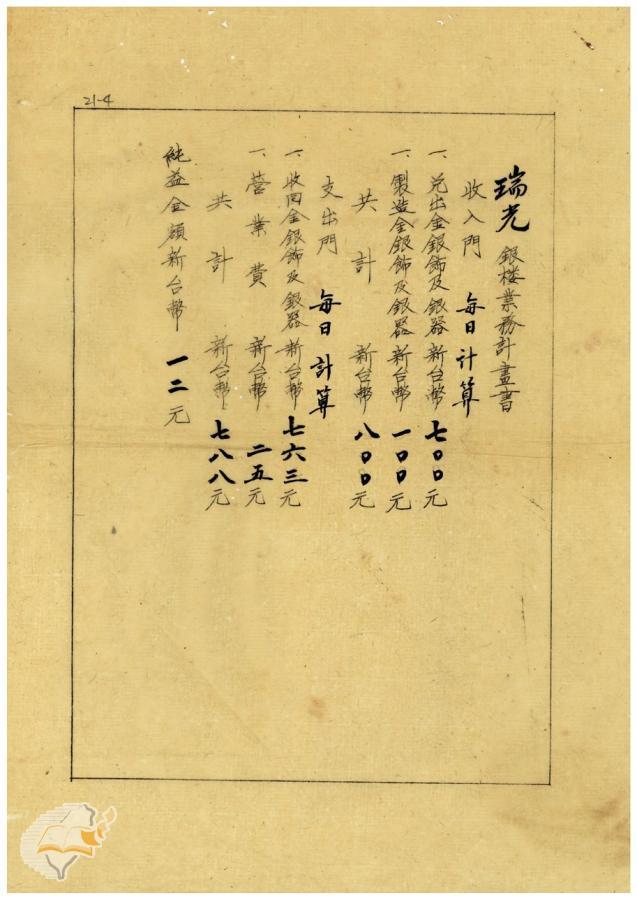 21-4
瑞光 銀楼業務計畫書
收入門 每日計算
一、兌出金銀飾及銀器 新台幣 七〇〇元
一、製造金銀飾及銀器 新台幣 一〇〇元
共計 新台幣 八〇〇元
支出門 每日計算
一、收回金銀飾及銀器 新台幣 七六三元
一、營業費 新台幣 二五元
共計 新台幣 七八八元
純益金額新台幣 一二元